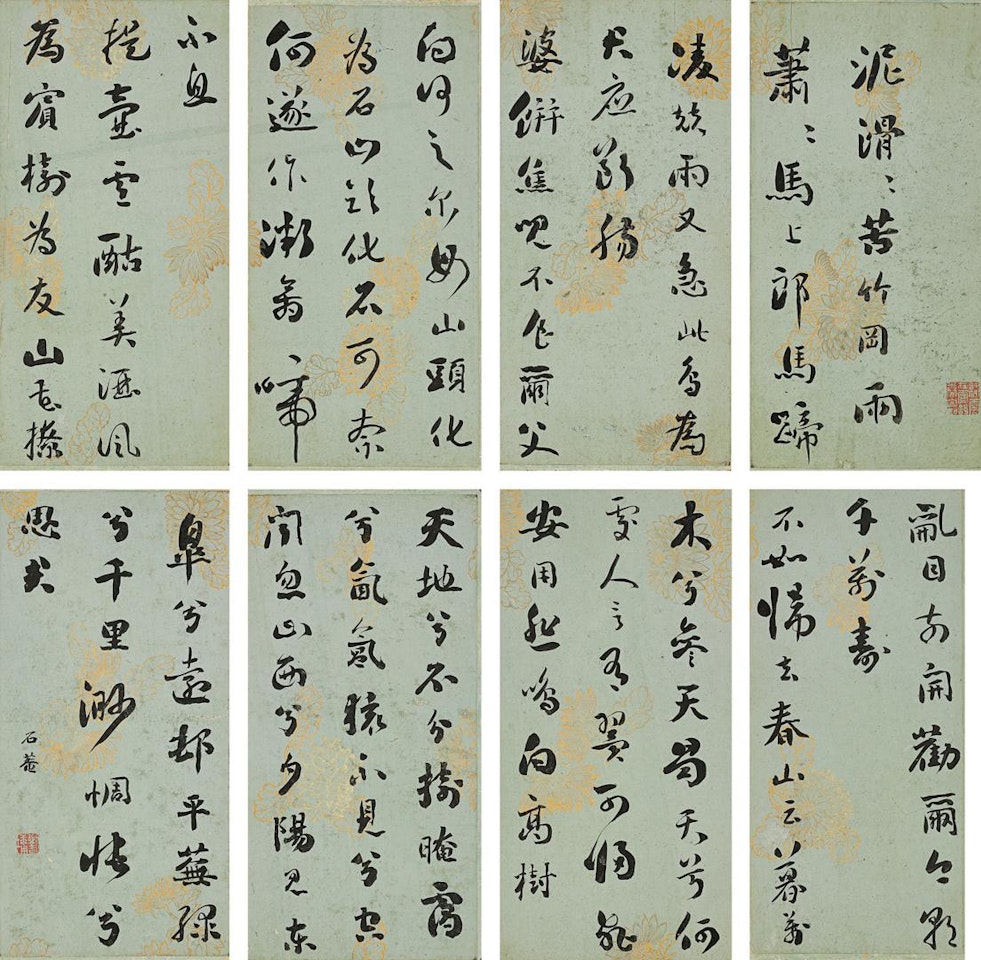 泥滑〻苦竹岡雨
蕭〻馬上郎馬蹄
凌兢雨又急此鳥為
君應斷腸
婆餅焦兒不食爾父
向何之爾母山頭化
為石山頭化石可奈
何遂作微禽啼
不息
提壺蘆酤美酒風
為賓樹為友山花撩
亂目前開勸爾今朝
千萬壽
不如歸去春山云暮萬
木兮參天蜀天兮何
處人言有翼可歸飛
安用鳴向高樹
天地兮不分樹晻靄
兮氤氳猿不見兮空
聞忽山西兮夕陽見東
皋兮遠邨平蕪綠
兮千里渺惆悵兮
思君
石菴